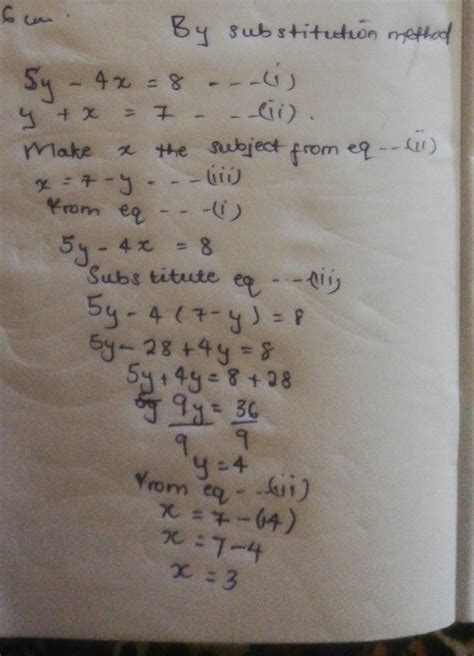 6 cm.
By substitution method
5y - 4x = 8 - - - (i)
y + x = 7 - - - (ii).
Make x the subject from eq - - - (ii)
x = 7 - y - - - - (iii)
from eq - - - (i)
5y - 4x = 8
Substitute eq - - - (iii)
5y - 4 (7 - y) = 8
5y - 28 + 4y = 8
5y + 4y = 8 + 28
9y = 36
9 9
y = 4
from eq - - - (iii)
x = 7 - (4)
x = 7 - 4
x = 3